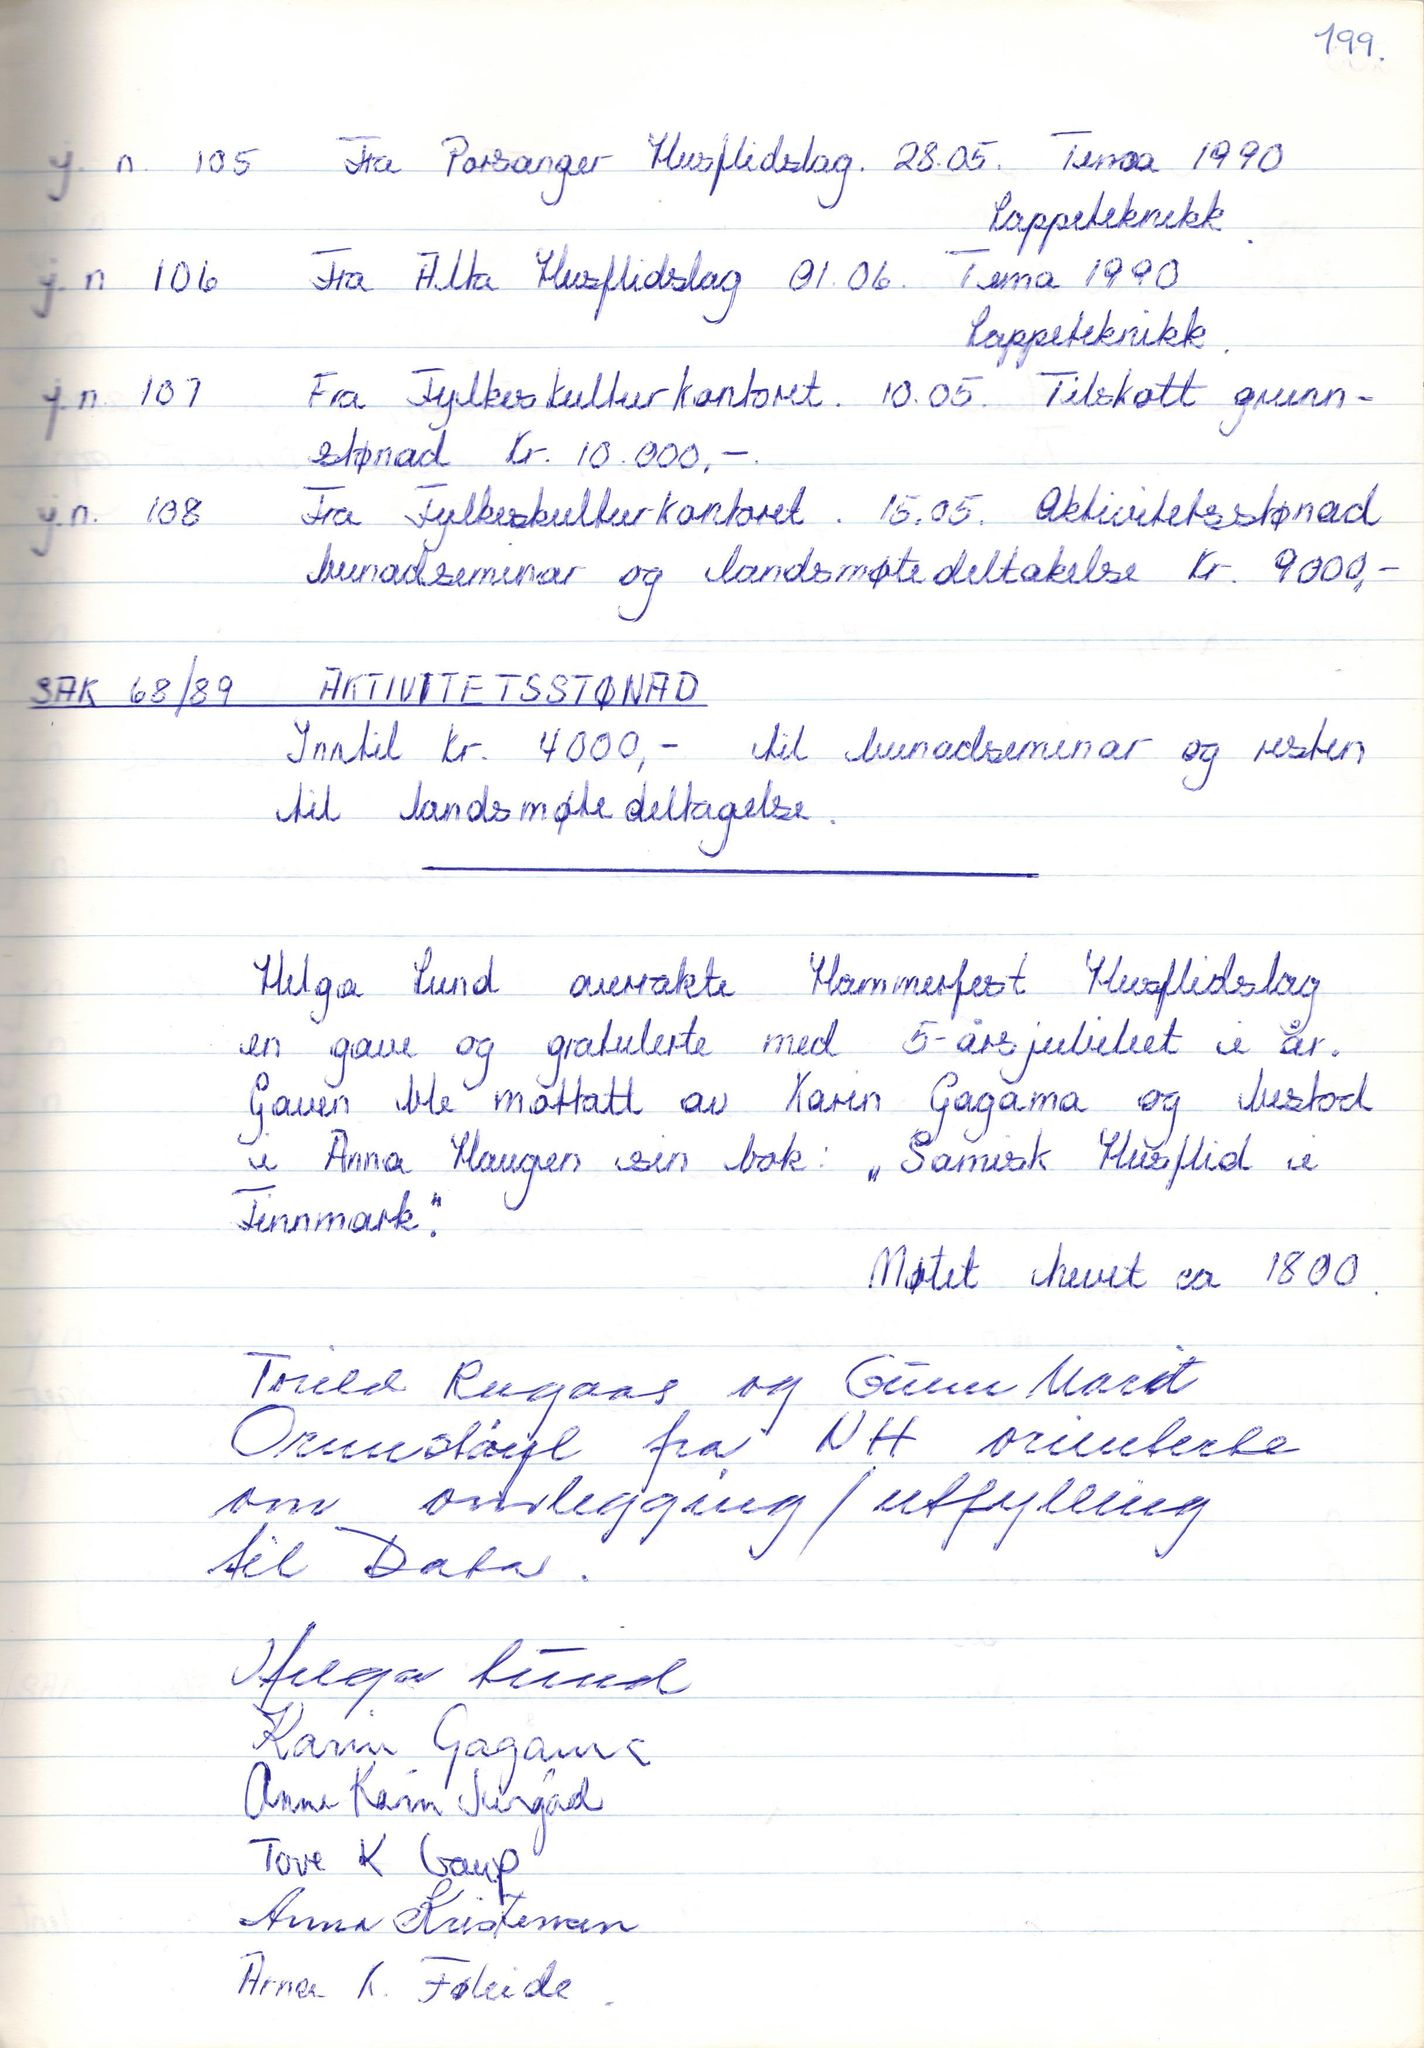 199.
j. n. 105 Fra Porsanger Husflidslag. 28.05. Tema 1990
Lappeteknikk.
j. n 106 Fra Alta Husflidslag 01.06. Tema 1990
Lappeteknikk.
j. n. 107 Fra Fylkeskulturkontoret. 10.05. Tilskott grunn-
stønad Kr. 10.000,-.
j. n. 108 Fra Fylkeskulturkontoret. 15.05. Aktivitetsstønad
bunadseminar og landsmøtedeltakelse Kr. 9000,-
SAK 68/89 AKTIVITETSSTØNAD
Inntil kr. 4000,- til bunadseminar og resten
til landsmøtedeltagelse.
Helga Lund overrakte Hammerfest Husflidslag
en gave og gratulerte med 5-årsjubileet i år.
Gaven ble mottatt av Karin Gagama og bestod
i Anna Haugen sin bok: „Samisk Husflid i
Finnmark".
Møtet hevet ca 1800.
Torild Rugaas og Gunn Marit
fra NH orienterte
om omlegging/utfylling
til Data.
Helga Lund
Karin Gagama
Anne Karin
Tove K Gaup
Anna Kristensen
Arna K. Føleide.